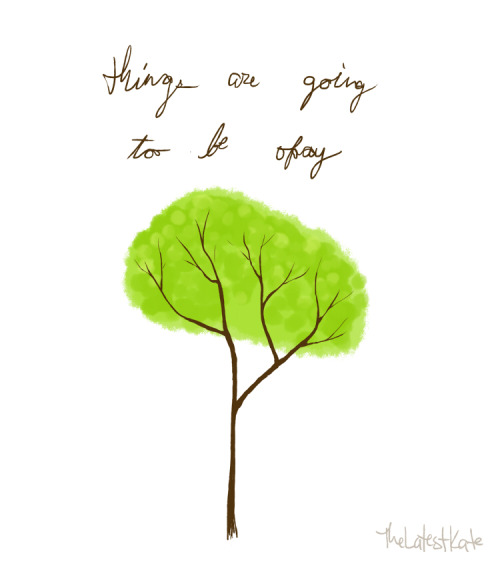 things are going
too be okay
TheLatestKate